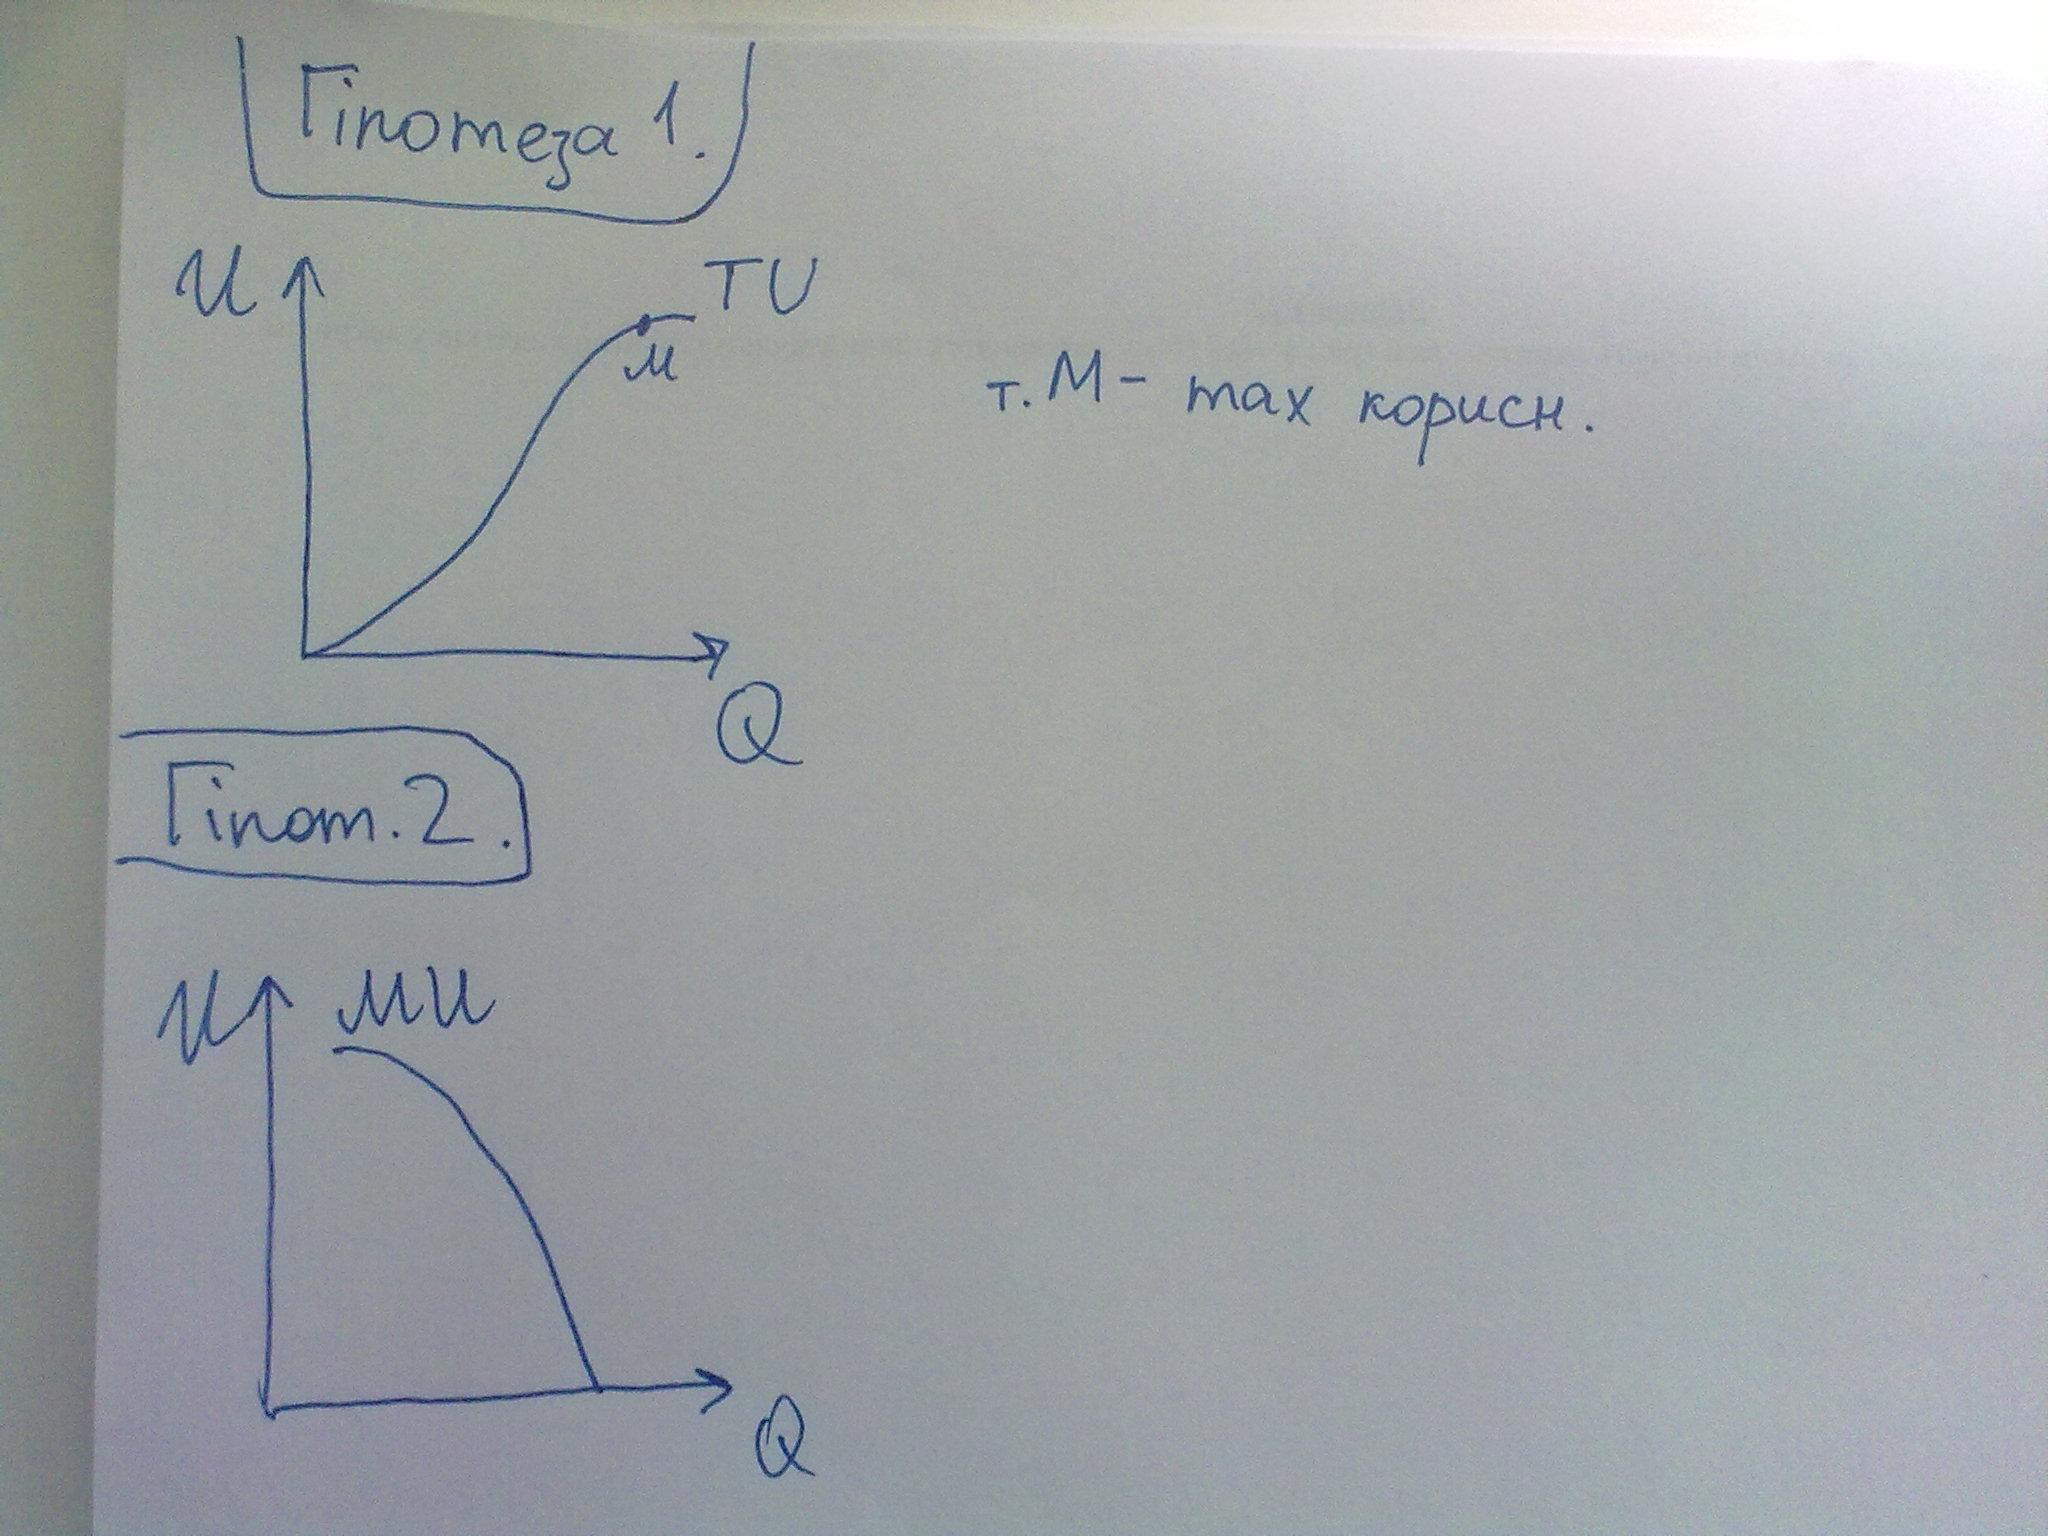 Гіпотеза 1.
U
TU
M
т. M - max корисн.
Q
Гіпот. 2.
U
MU
Q